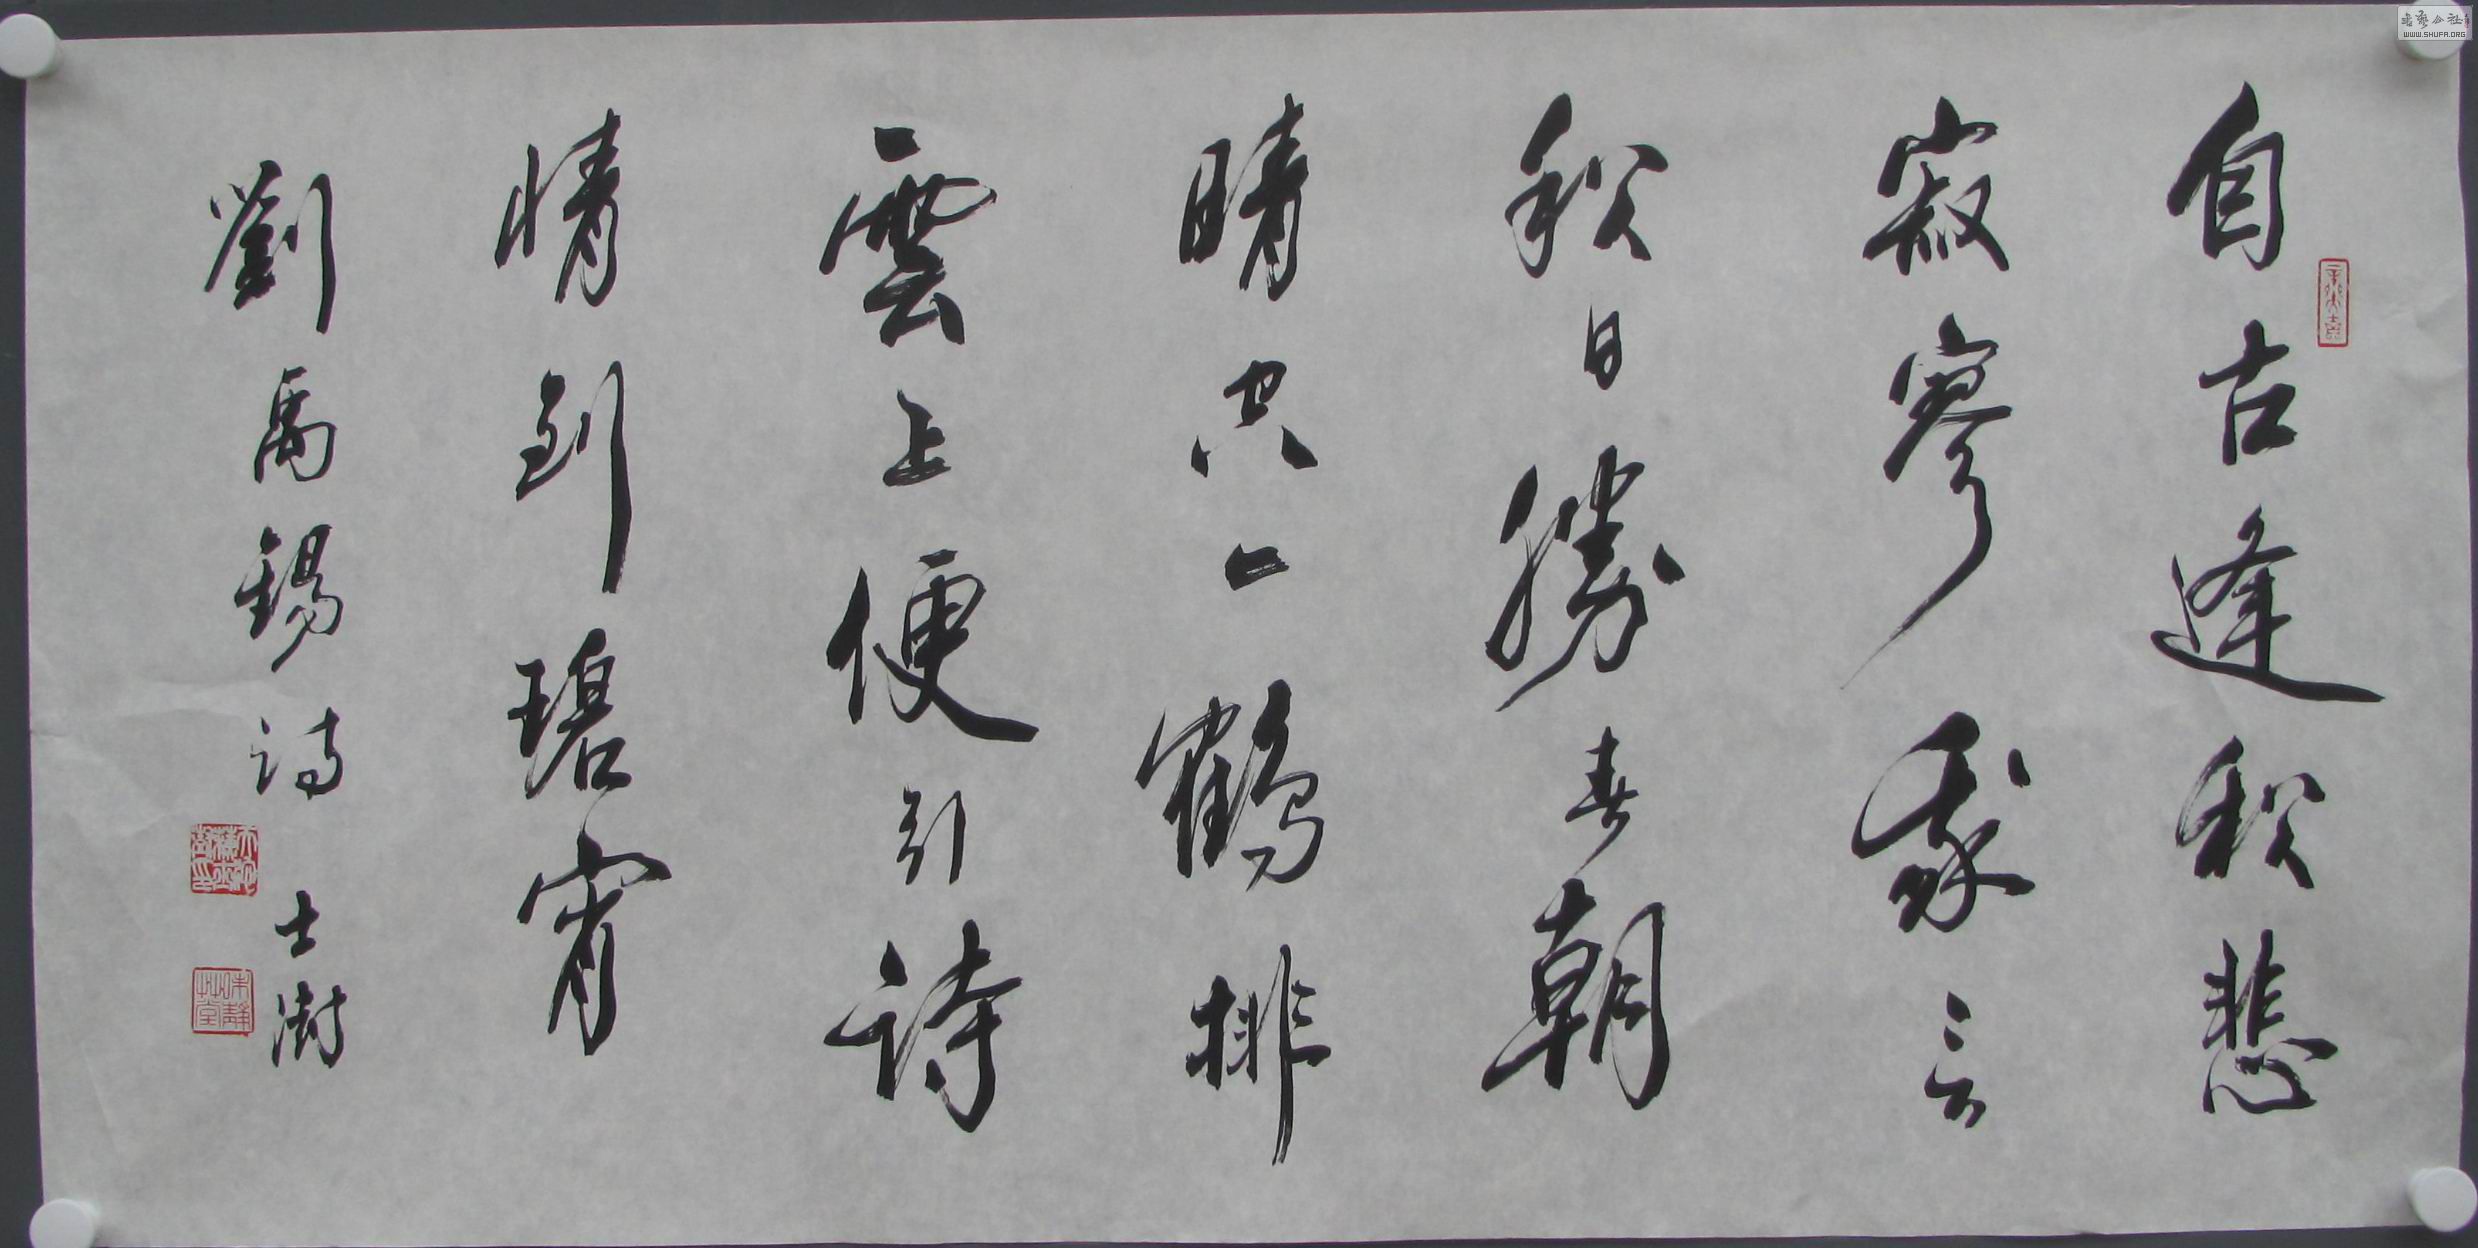 自古逢秋悲
寂寥我言
秋日勝春朝
晴空一鶴排
雲上便引詩
情到碧宵
劉禹錫詩 士澍
WWW.SHUFA.ORG